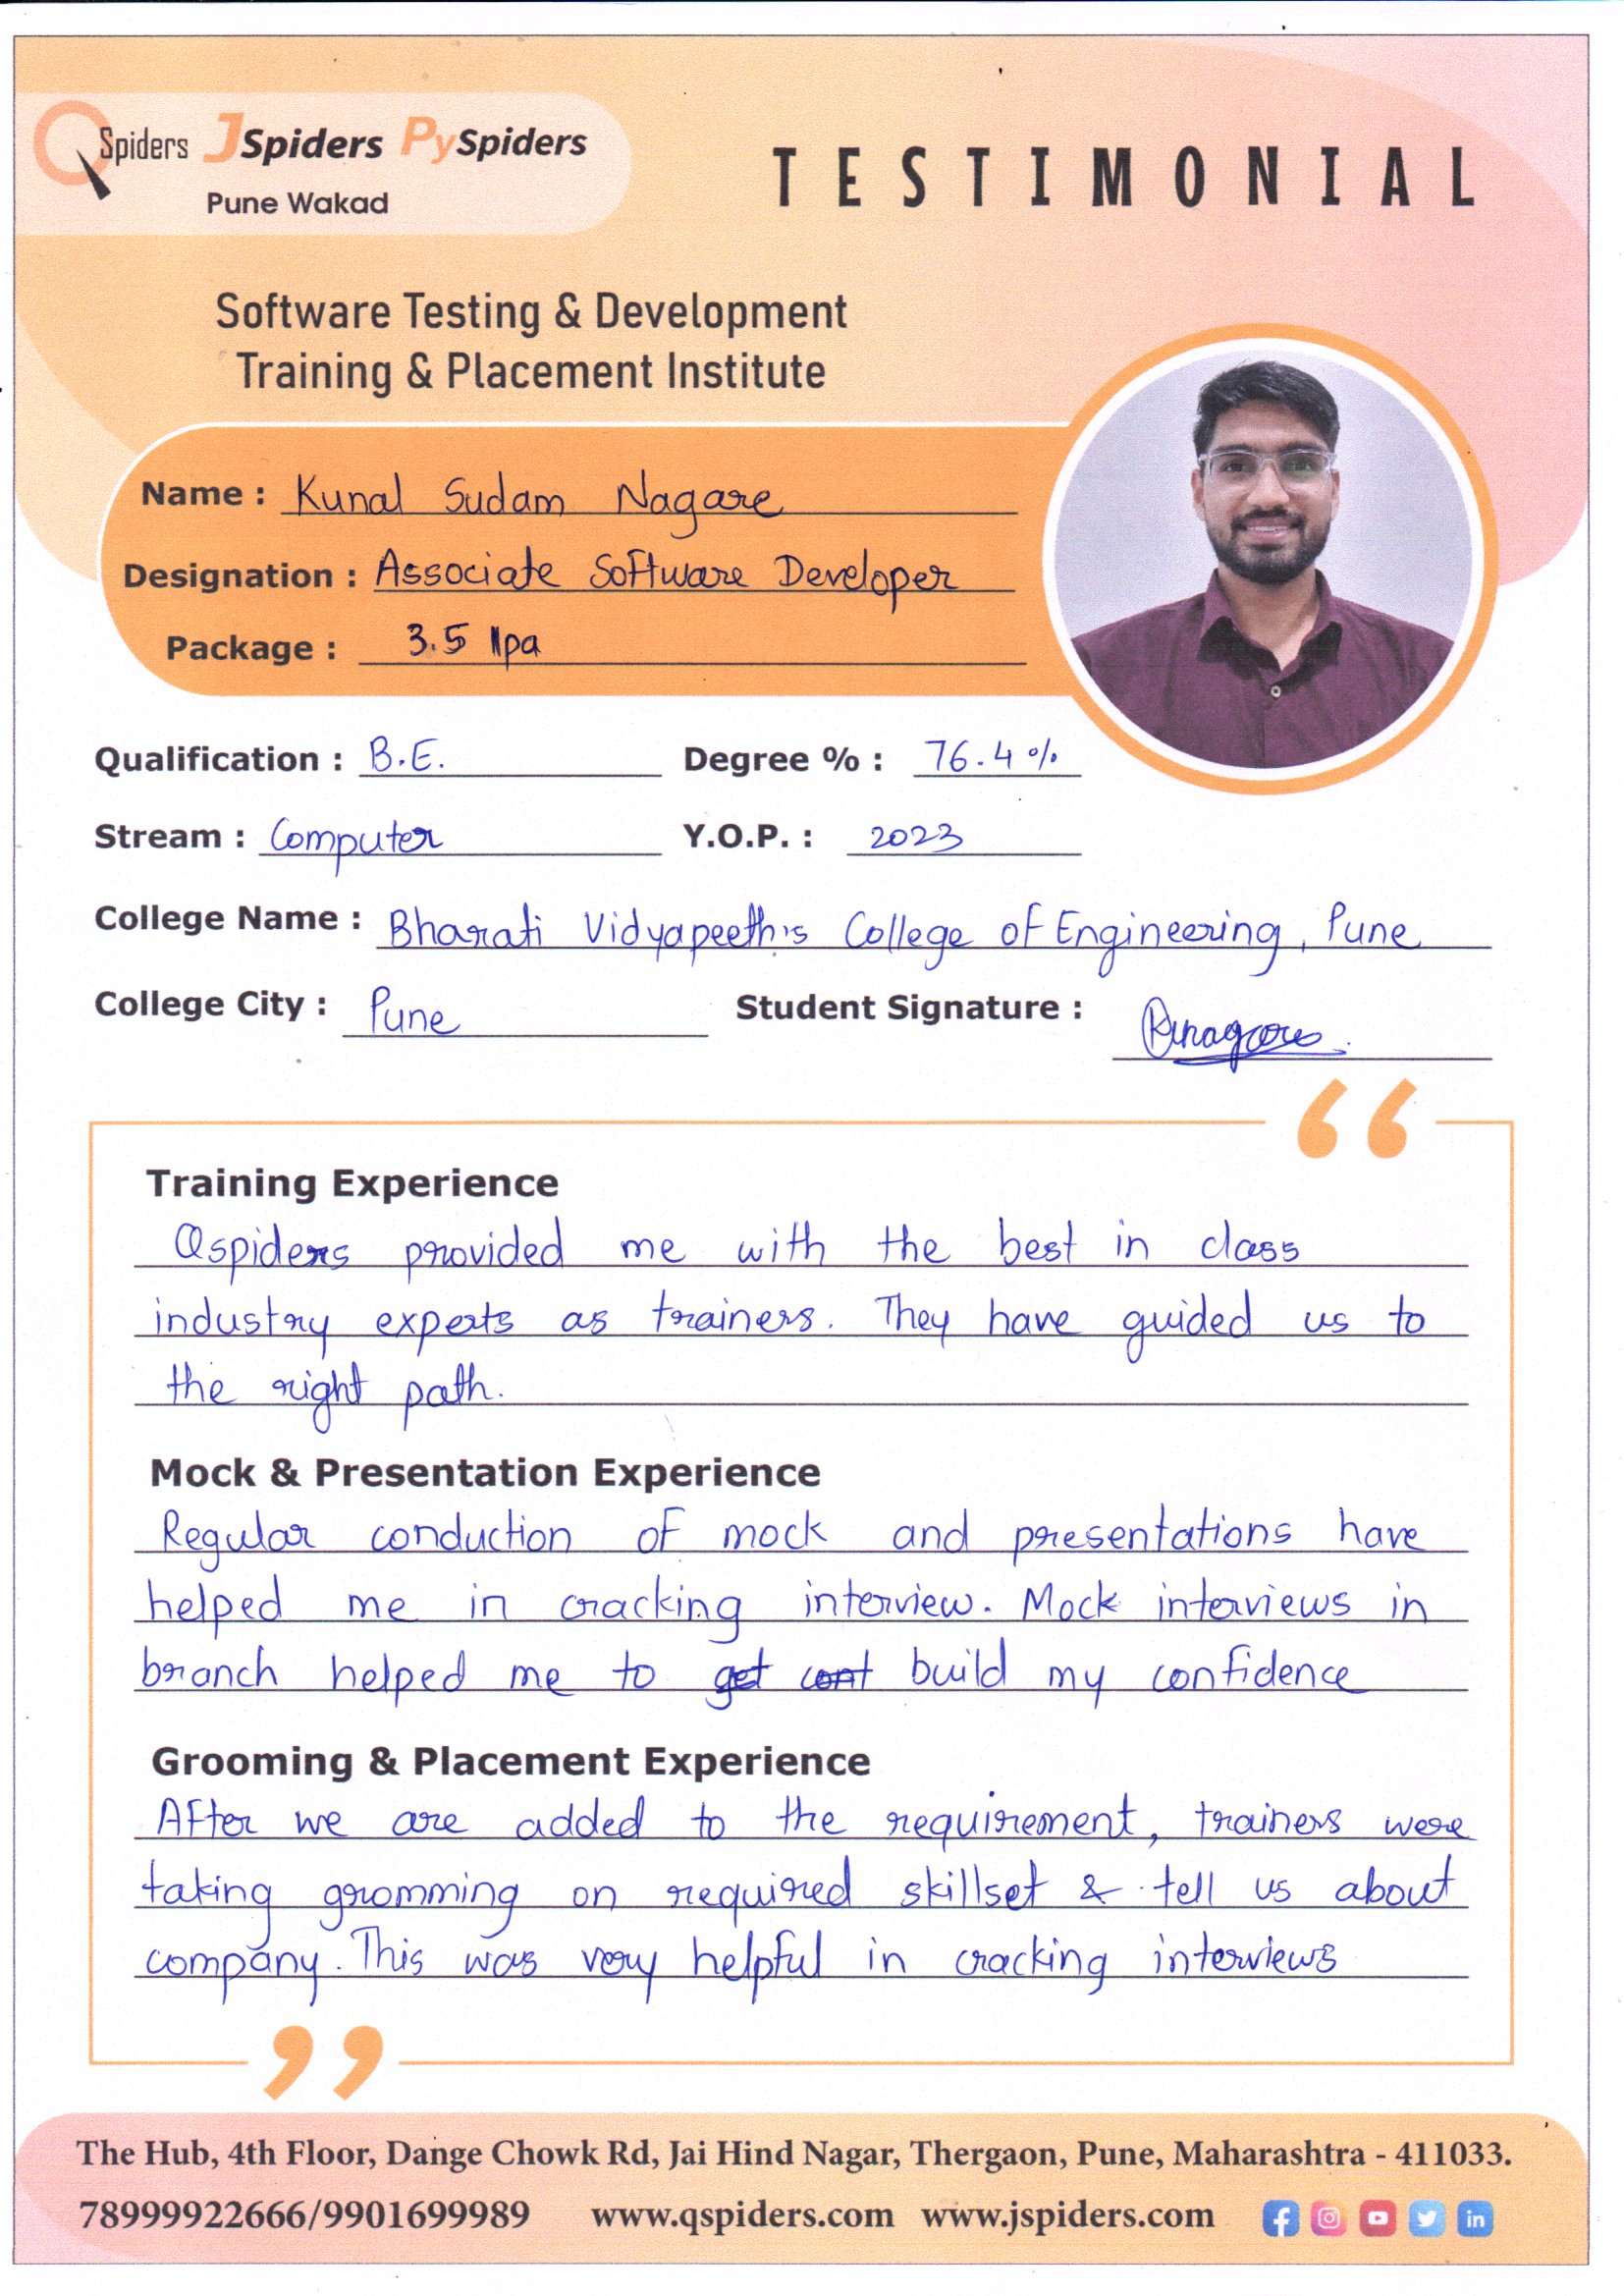 QSpiders JSpiders PySpiders
Pune Wakad
TESTIMONIAL
Software Testing & Development
Training & Placement Institute
Name : Kunal Sudam Nagare
Designation : Associate Software Developer
Package : 3.5 lpa
Qualification : B.E. Degree % : 76.4 %
Stream : Computer Y.O.P. : 2023
College Name : Bharati Vidyapeeth's College of Engineering, Pune
College City : Pune Student Signature :
Training Experience
Qspiders provided me with the best in class
industry experts as trainers. They have guided us to
the right path.
Mock & Presentation Experience
Regular conduction of mock and presentations have
helped me in cracking interview. Mock interviews in
branch helped me to get cont build my confidence
Grooming & Placement Experience
After we are added to the requirement, trainers were
taking gromming on required skillset & tell us about
company. This was very helpful in cracking interviews
The Hub, 4th Floor, Dange Chowk Rd, Jai Hind Nagar, Thergaon, Pune, Maharashtra - 411033.
78999922666/9901699989 www.qspiders.com www.jspiders.com